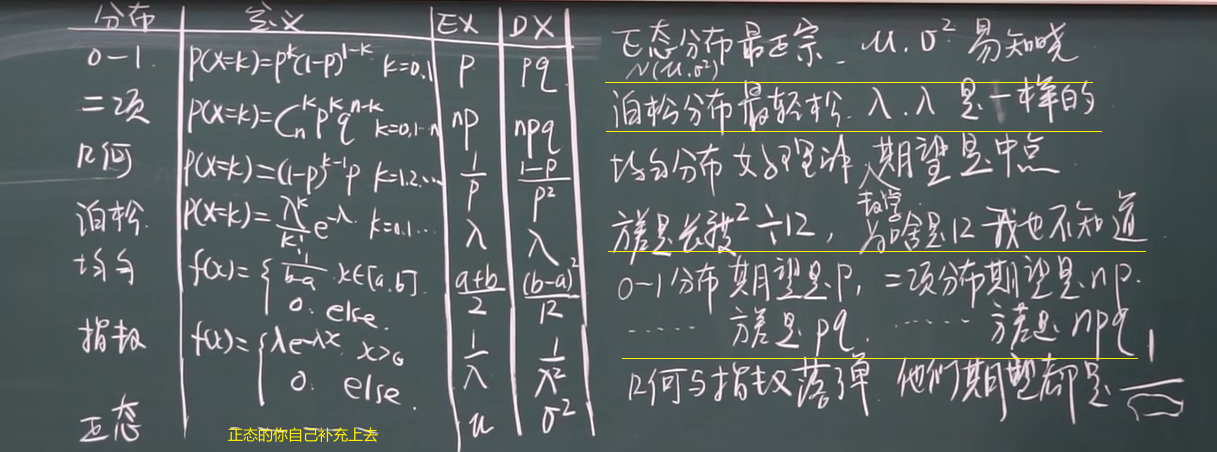 分布 定义 EX DX
0-1 P(X=k)=p^k(1-p)^{1-k} k=0,1 p pq
二项 P(X=k)=C_n^k p^k q^{n-k} k=0,1…n np npq
几何 P(X=k)=(1-p)^{k-1}p k=1.2… 1/p (1-p)/p²
泊松 P(X=k)=λ^k/k! e^{-λ} k=0.1… λ λ
均匀 f(x)={1/(b-a) x∈[a,b]. (a+b)/2 (b-a)²/12
0. else.
指数 f(x)={λe^{-λx} x>0 1/λ 1/λ²
0. else.
正态 μ σ²
正态的你自己补充上去
正态分布最正宗 μ.σ² 易知晓
N(μ.σ²)
泊松分布最轻松. λ.λ 是一样的
均匀分布 期望是中点
方差是长度²÷12, 为啥是12 我也不知道
数学
0-1分布期望是p, 二项分布期望是np.
…… 方差是pq. …… 方差是npq
几何与指数 他们期望都是 1/